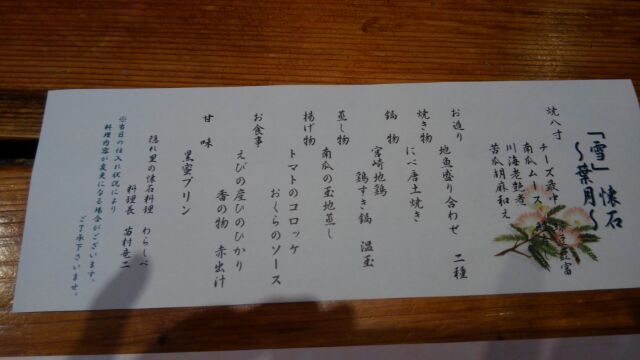 「雪」 懐石
～葉月～
焼八寸
チーズ最中
南瓜ムース
川海老艶煮
苦瓜胡麻和え
お造り 地魚盛り合わせ 二種
焼き物 にべ唐土焼き
鍋 物 宮崎地鶏
鶏すき鍋 温玉
蒸し物 南瓜の玉地蒸し
揚げ物 トマトのコロッケ
おくらのソース
お食事 えびの産ひのひかり
香の物 赤出汁
甘 味 黒蜜プリン
隠れ里の懐石料理 わらしべ
料理長 苗村竜二
※当日の仕入れ状況により
料理内容が変更になる場合がございます。
ご了承下さいませ。